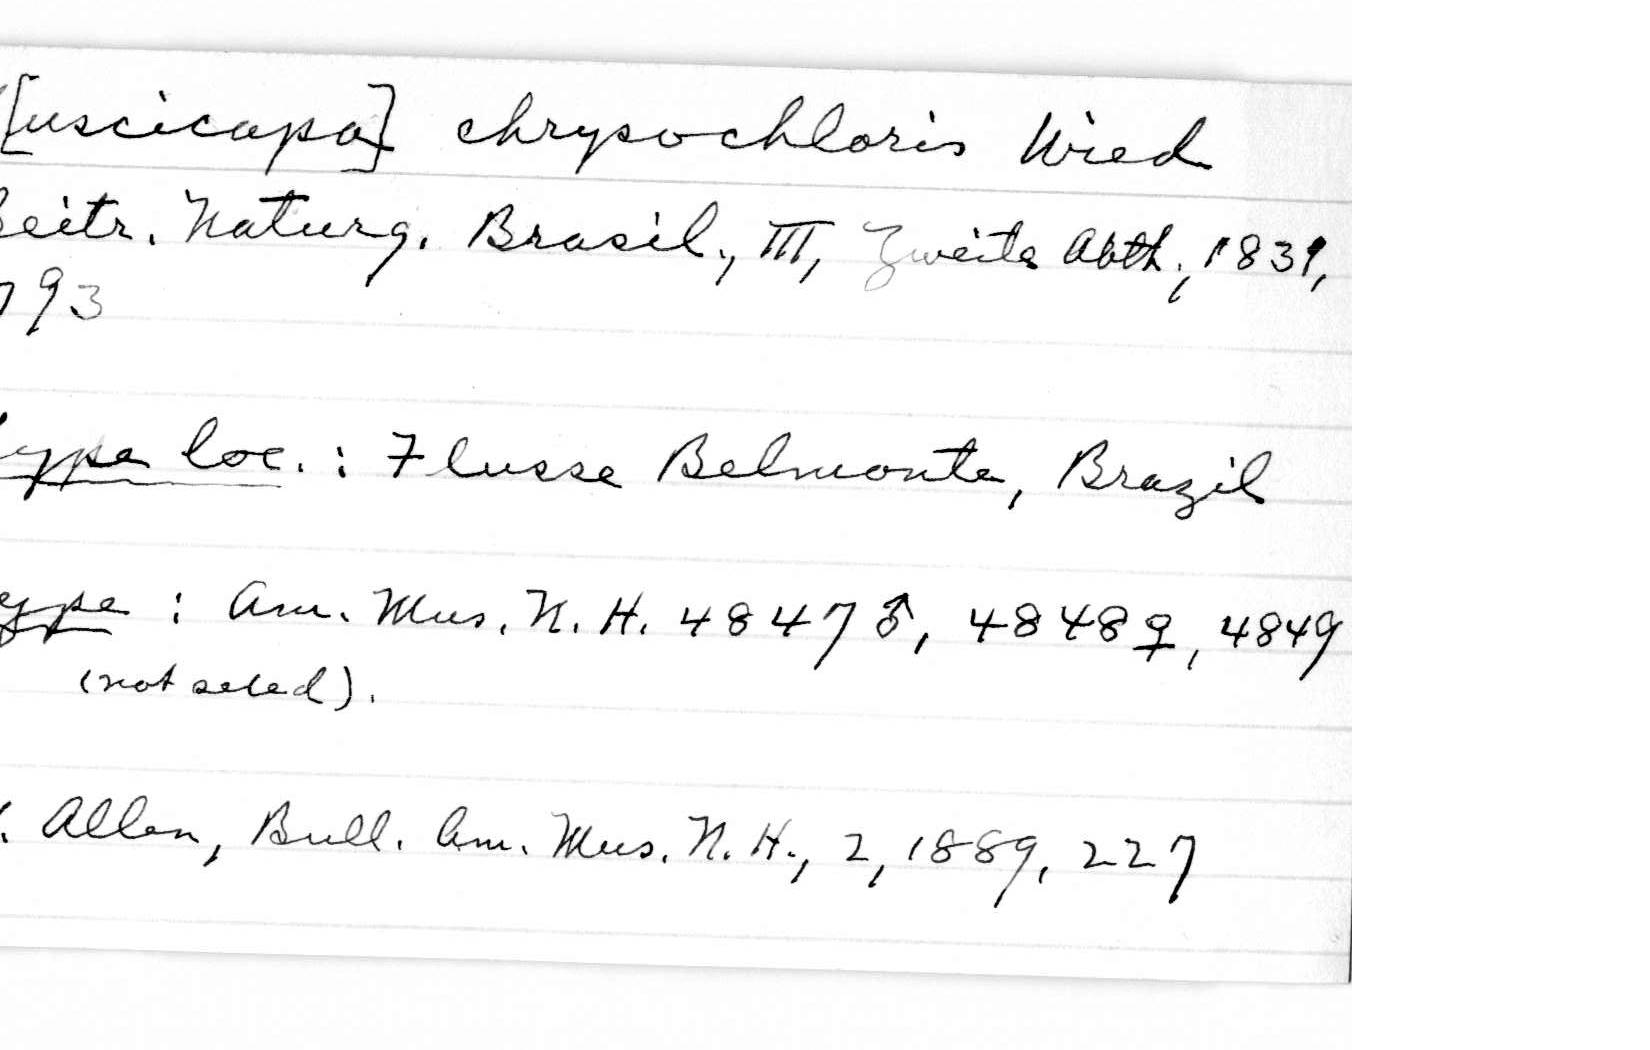 [uscicapa] chrysochloris Wied
Beitr. Naturg. Brasil., III, Zweite Abth., 1831,
793
ype loc. : Flusse Belmonte, Brazil
ype : Am. Mus. N. H. 4847 ♂, 4848 ♀, 4849
(not sexed).
. Allen, Bull. Am. Mus. N. H., 2, 1889, 227